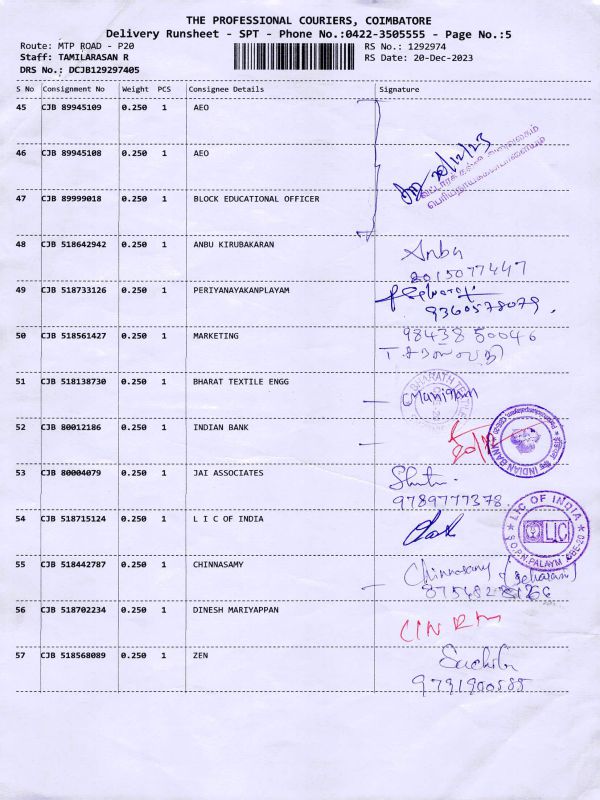 THE PROFESSIONAL COURIERS, COIMBATORE
Delivery Runsheet - SPT - Phone No.:0422-3505555 - Page No.:5
Route: MTP ROAD - P20 RS No.: 1292974
Staff: TAMILARASAN R RS Date: 20-Dec-2023
DRS No.: DCJB129297405
S No Consignment No Weight PCS Consignee Details Signature
45 CJB 89945109 0.250 1 AEO
46 CJB 89945108 0.250 1 AEO
20/12/23
47 CJB 89999018 0.250 1 BLOCK EDUCATIONAL OFFICER
48 CJB 518642942 0.250 1 ANBU KIRUBAKARAN Anbu
8015077447
49 CJB 518733126 0.250 1 PERIYANAYAKANPLAYAM
9360578079.
50 CJB 518561427 0.250 1 MARKETING 98438 50046
51 CJB 518138730 0.250 1 BHARAT TEXTILE ENGG
52 CJB 80012186 0.250 1 INDIAN BANK INDIAN BANK
53 CJB 80004079 0.250 1 JAI ASSOCIATES
9789777378.
54 CJB 518715124 0.250 1 L I C OF INDIA LIC OF INDIA
LIC
S.O.P.N.PALAYM CBE-20
55 CJB 518442787 0.250 1 CHINNASAMY Chinnasamy
56 CJB 518702234 0.250 1 DINESH MARIYAPPAN
57 CJB 518568089 0.250 1 ZEN
9791900585